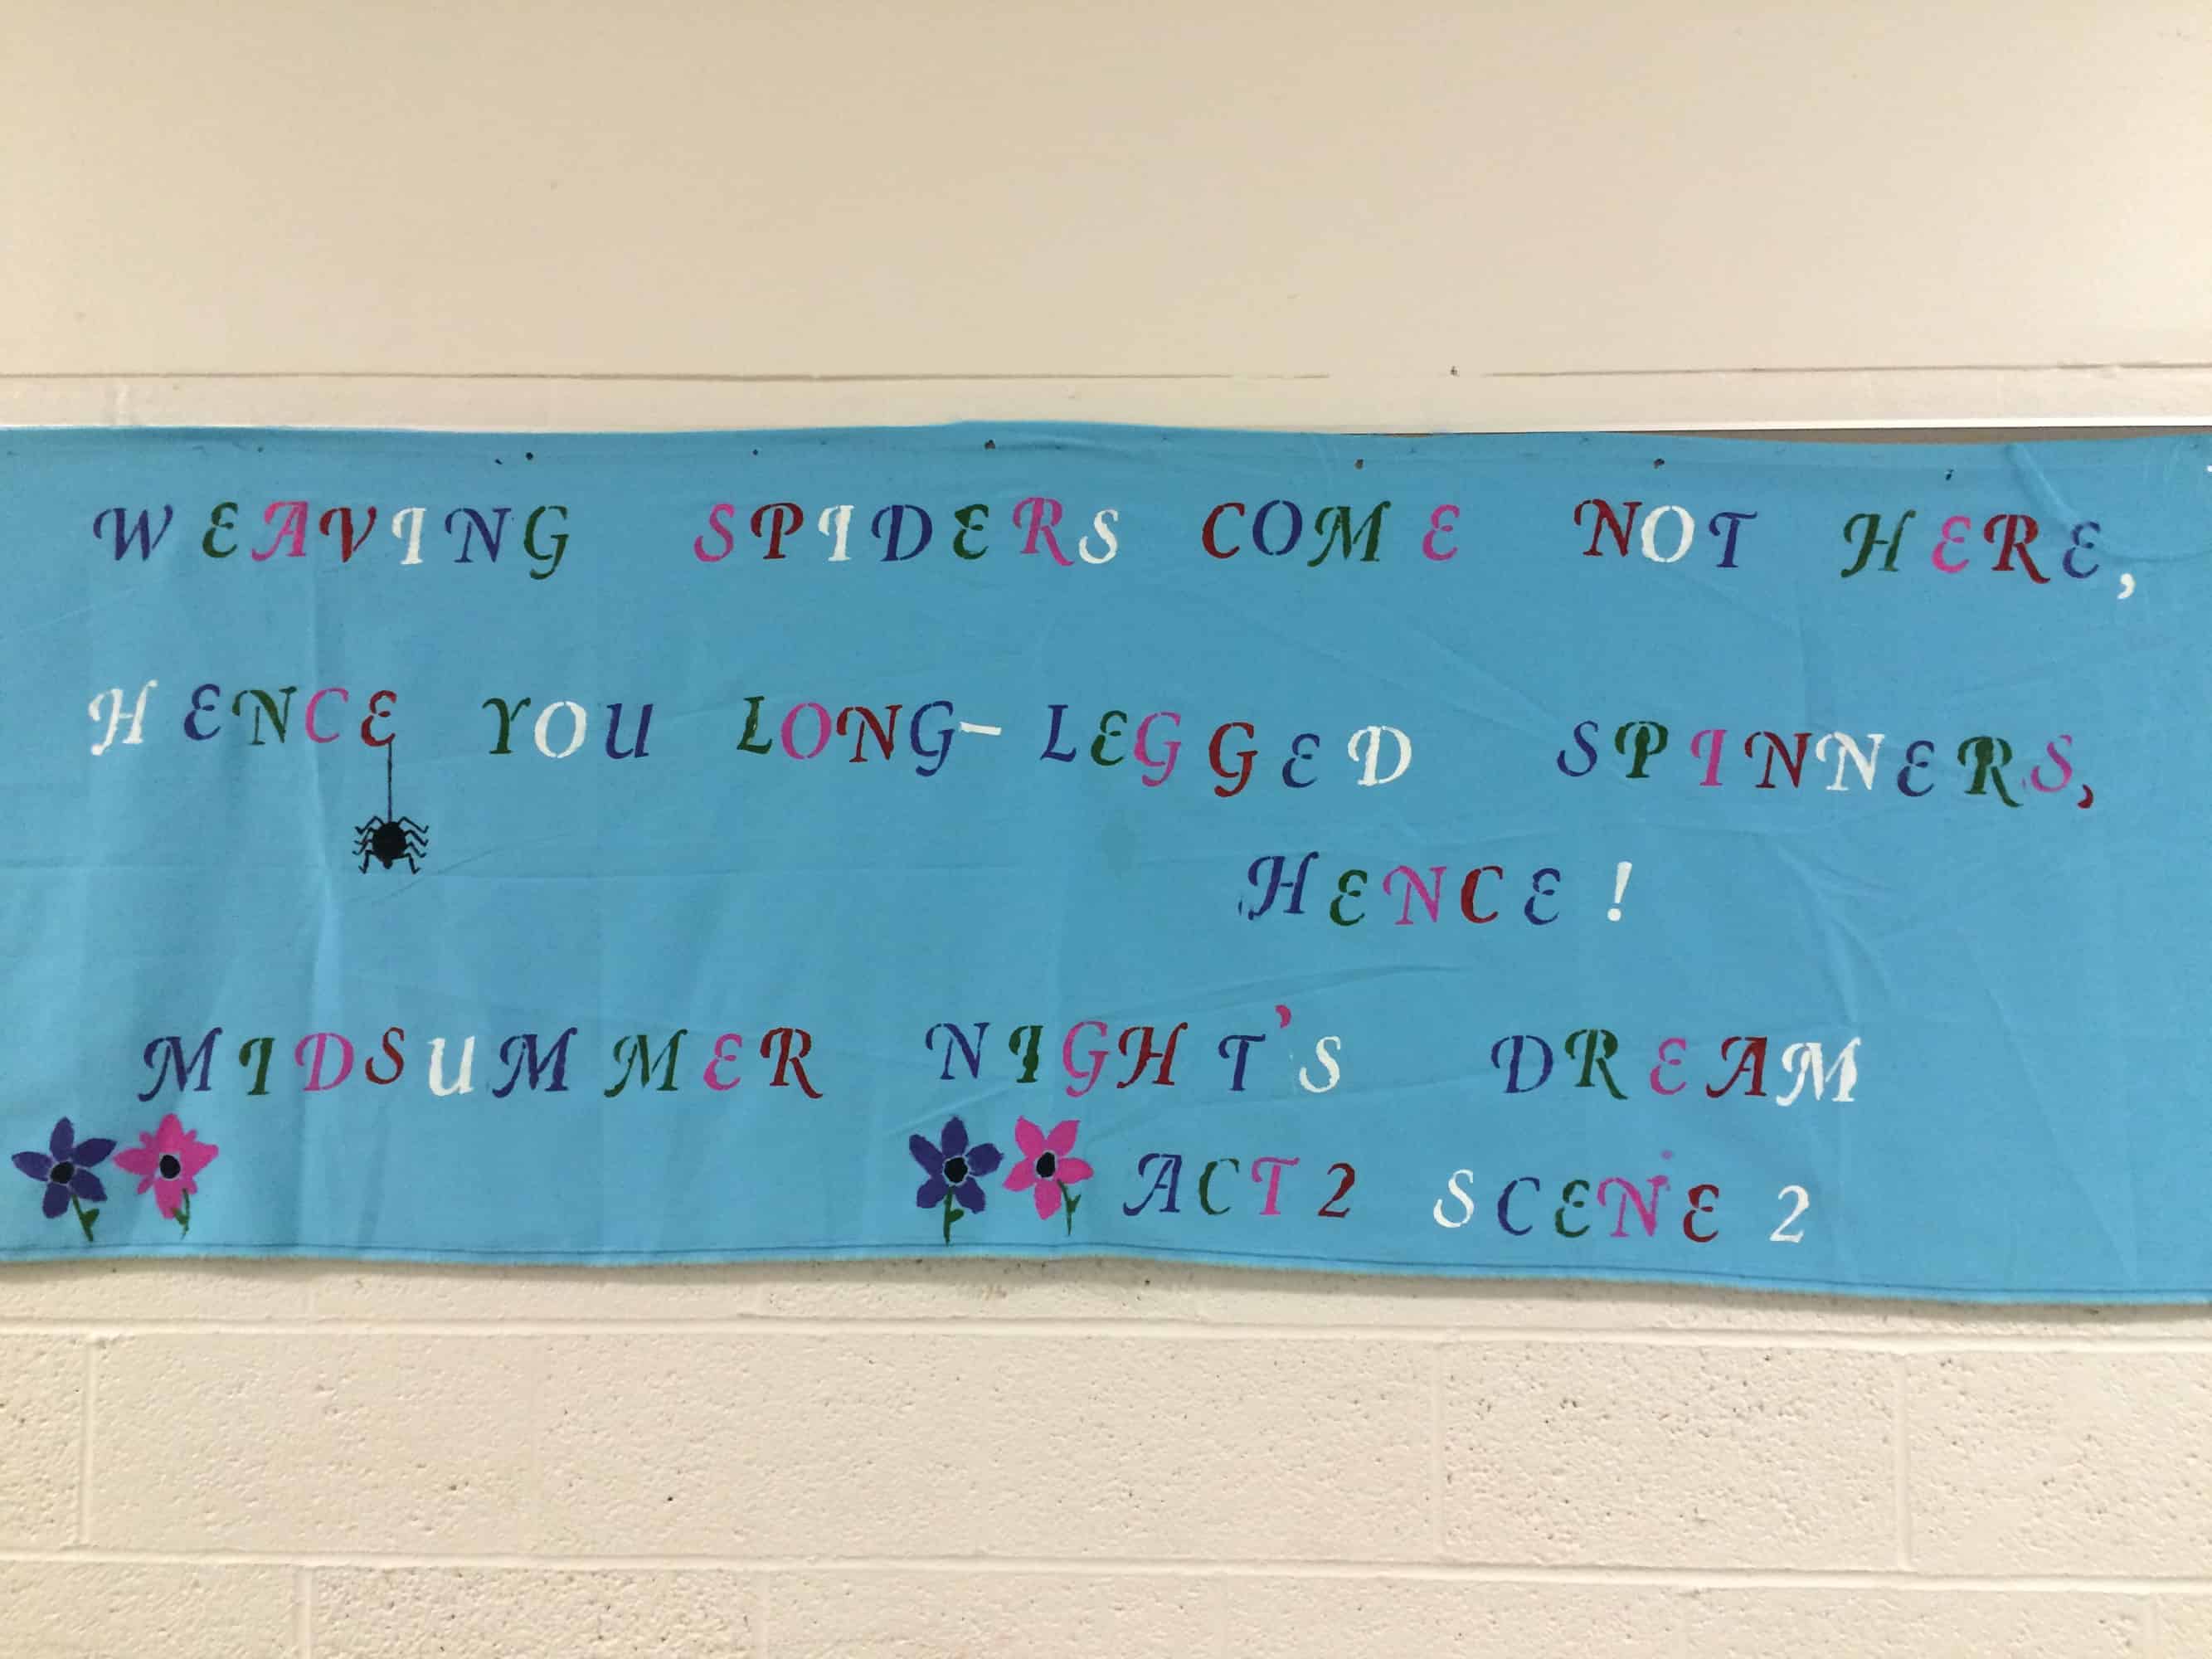 WEAVING SPIDERS COME NOT HERE,
HENCE YOU LONG-LEGGED SPINNERS,
HENCE!
MIDSUMMER NIGHT'S DREAM
ACT 2 SCENE 2